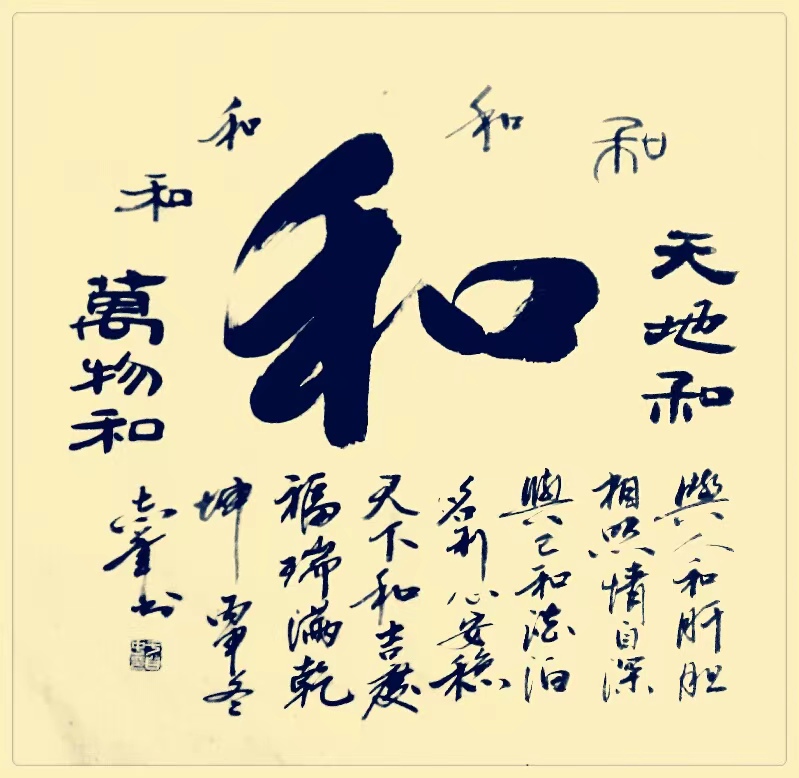 和
和
和
和
和
天地和
萬物和
與人和肝胆
相照情自深
與己和淡泊
名利心安稳
天下和吉慶
福瑞滿乾
坤 丙申冬
志 书